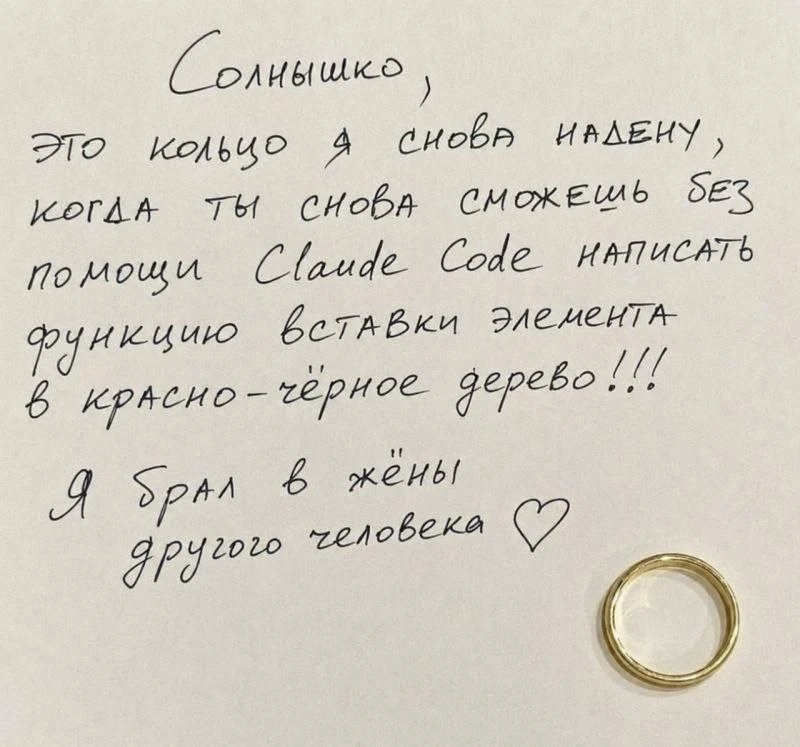 Солнышко,
это кольцо я снова надену,
когда ты снова сможешь без
помощи Claude Code написать
функцию вставки элемента
в красно-чёрное дерево!!!
Я брал в жёны
другого человека ♡